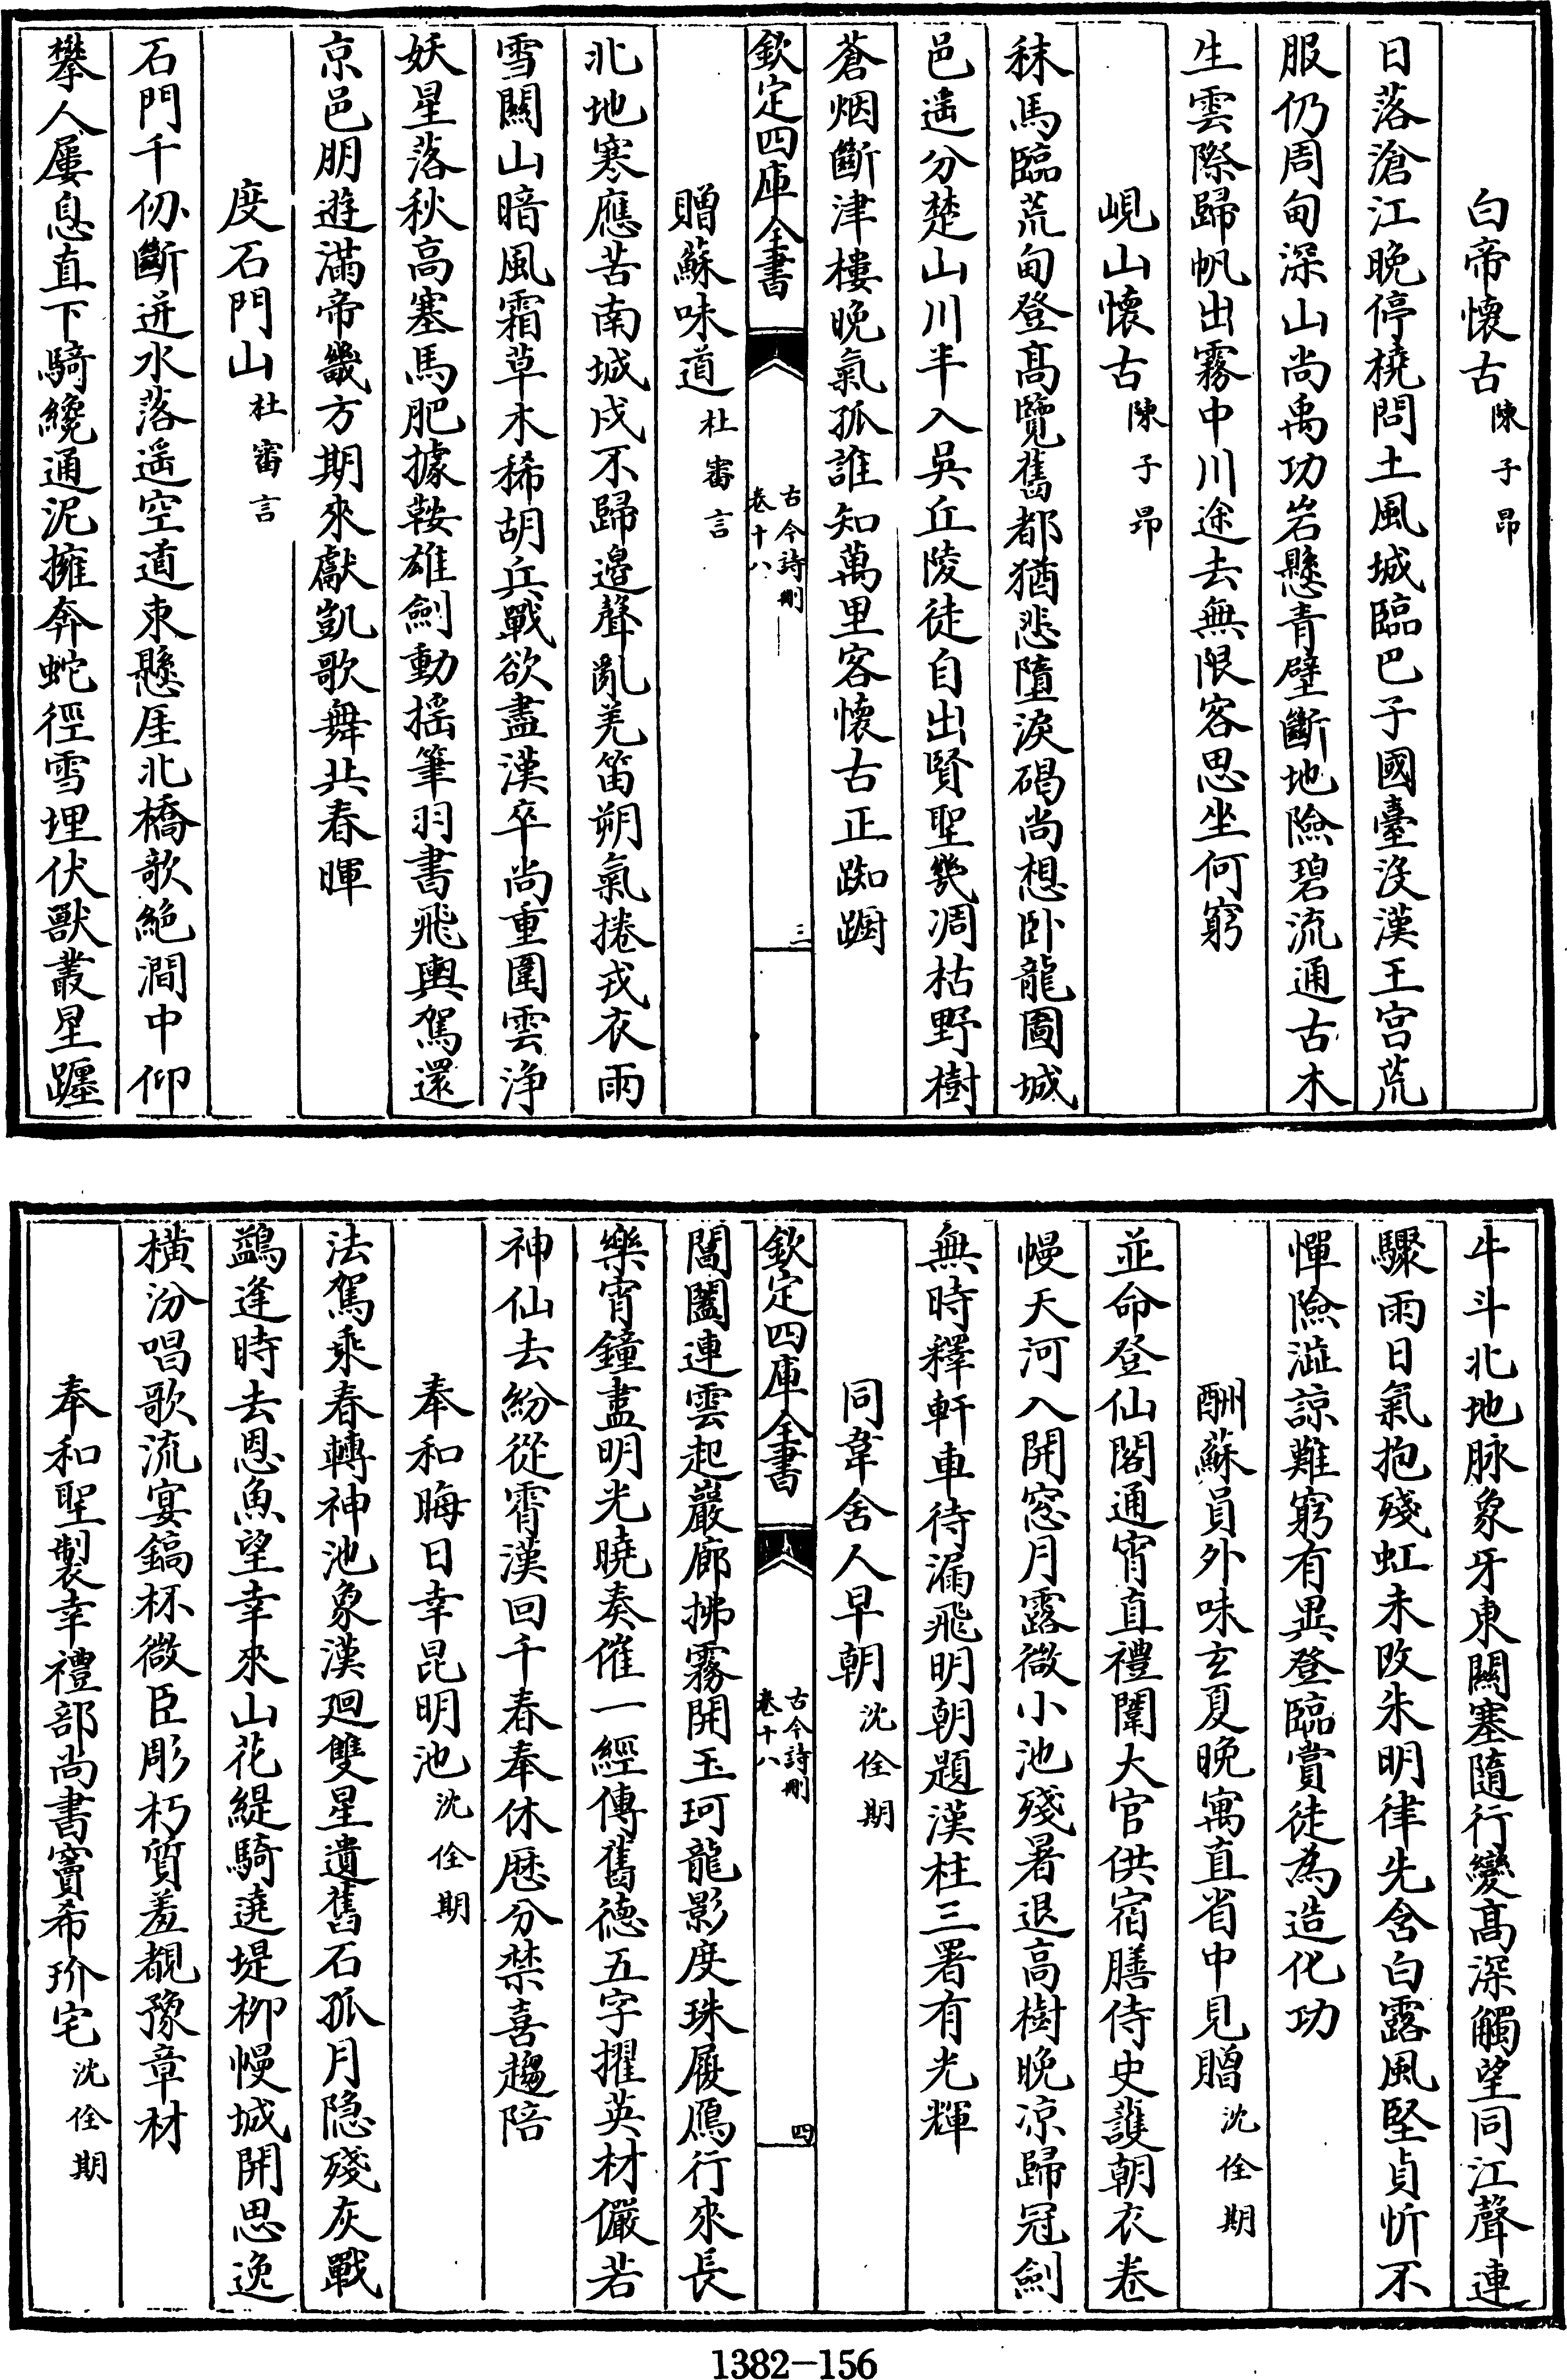 白帝懷古陳子昂
日落滄江晚停橈問土風城臨巴子國臺没漢王宫荒
服仍周甸深山尚禹功岩懸青壁斷地險碧流通古木
生雲際歸帆出霧中川途去無限客思坐何窮
峴山懷古陳子昂
秣馬臨荒甸登髙覽舊都猶悲墮淚碣尚想卧龍圖城
邑遥分楚山川半入吳丘陵徒自出賢聖幾凋枯野樹
蒼烟斷津樓晚氣孤誰知萬里客懷古正踟蹰
欽定四庫全書
古今詩刪
卷十八
三
贈蘇味道杜審言
北地寒應苦南城戍不歸邉聲亂羌笛朔氣捲戎衣雨
雪關山暗風霜草木稀胡兵戰欲盡漢卒尚重圍雲浄
妖星落秋高塞馬肥據鞍雄劍動揺筆羽書飛輿駕還
京邑朋遊滿帝畿方期來獻凱歌舞共春暉
度石門山杜審言
石門千仞斷迸水落遥空道束懸厓北橋欹絶澗中仰
攀人屢息直下騎纔通泥擁奔蛇徑雪埋伏獸叢星躔
牛斗北地脉象牙東闗塞隨行變髙深觸望同江聲連
驟雨日氣抱殘虹未改朱明律先含白露風堅貞忻不
憚險澁諒難窮有異登臨賞徒為造化功
酬蘇員外味玄夏晚寓直省中見贈沈佺期
並命登仙閣通宵直禮闈大官供宿膳侍史護朝衣卷
幔天河入開窓月露微小池殘暑退高樹晚凉歸冠劍
無時釋軒車待漏飛明朝題漢柱三署有光輝
同韋舍人早朝沈佺期
欽定四庫全書
古今詩刪
卷十八
四
閶闔連雲起巖廊拂霧開玉珂龍影度珠履鴈行來長
樂宵鐘盡明光曉奏催一經傳舊徳五字擢英材儼若
神仙去紛從霄漢回千春奉休厯分禁喜趨陪
奉和晦日幸昆明池沈佺期
法駕乘春轉神池象漢廻雙星遺舊石孤月隐殘灰戰
鷁逢時去恩魚望幸來山花緹騎遶堤柳幔城開思逸
橫汾唱歌流宴鎬杯微臣彫朽質羞覩豫章材
奉和聖製幸禮部尚書竇希玠宅沈佺期
1382-156